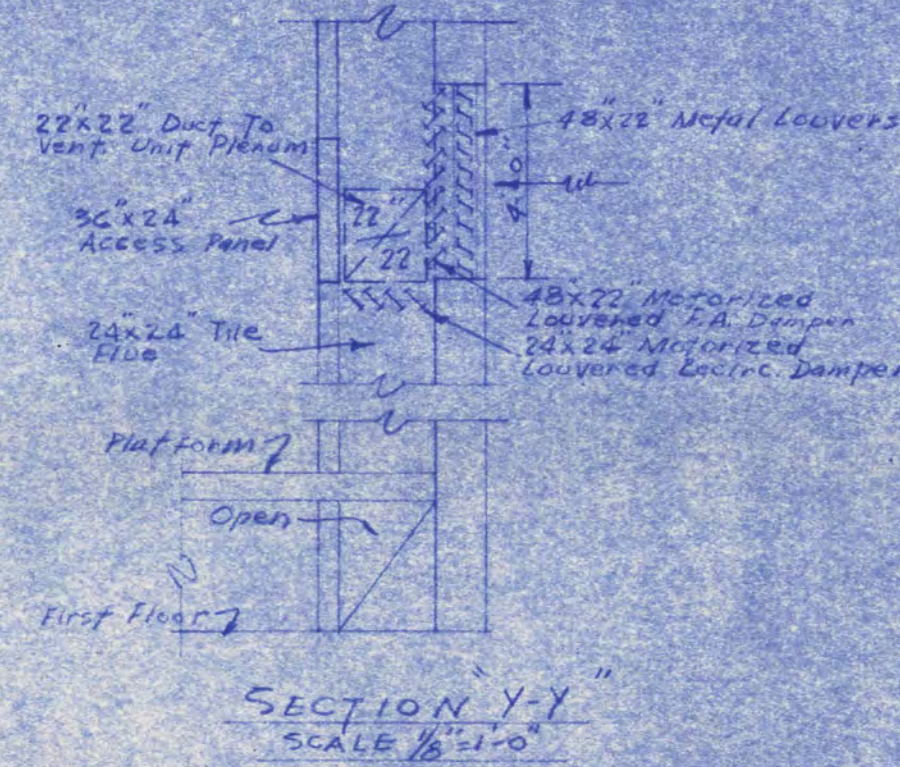 22"x22" Duct To
Vent. Unit Plenum
48"x22" Metal Louvers
36"x24"
Access Panel
22"
22
4'-0"
48"x22" Motorized
Louvered F.A. Damper
24"x24" Tile
Flue
24"x24" Motorized
Louvered Recirc. Damper
Platform
Open
First Floor
SECTION "Y-Y"
SCALE 1/8"=1'-0"